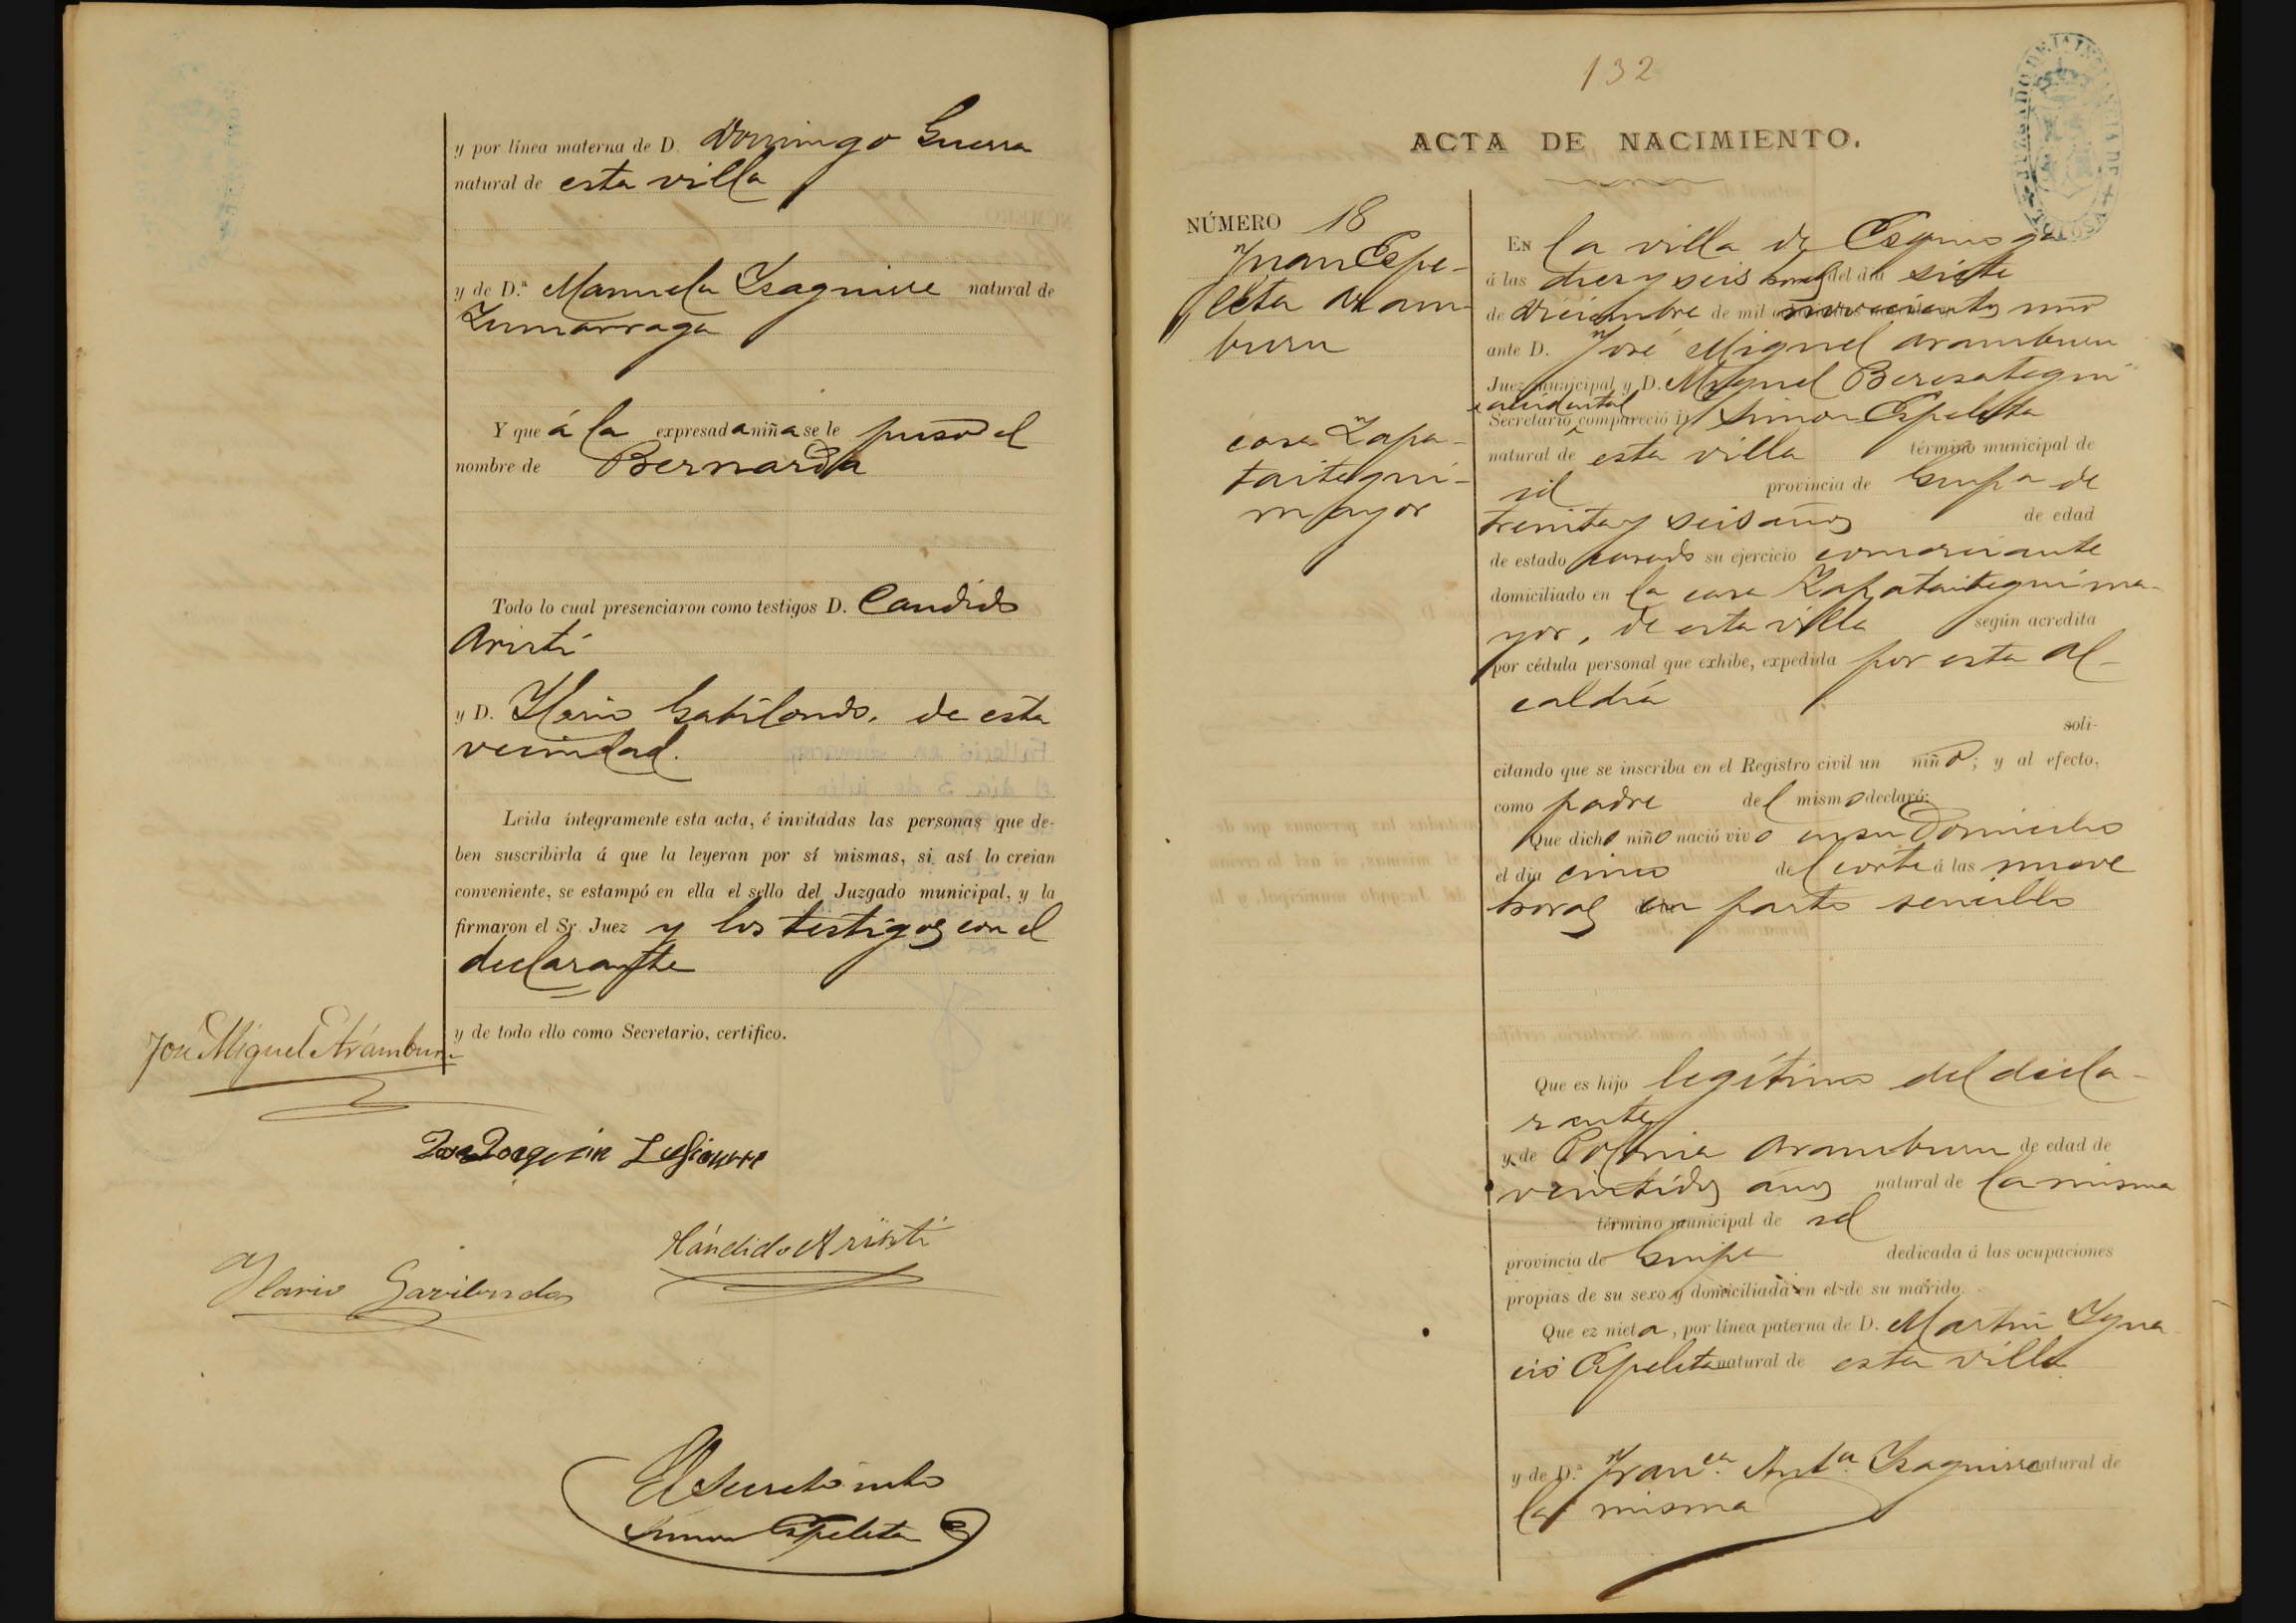 y por línea materna de D. Domingo Guerra
natural de esta villa
y de D.ª Manuela Ysaguirre natural de
Zumarraga
Y que á la expresada niña se le puso el
nombre de Bernarda
Todo lo cual presenciaron como testigos D. Candido
Aristi
y D. Ylario Gabilondo, de esta
vecindad.
Leida íntegramente esta acta, é invitadas las personas que de-
ben suscribirla á que la leyeran por sí mismas, si así lo creian
conveniente, se estampó en ella el sello del Juzgado municipal, y la
firmaron el Sr. Juez y los testigos con el
declarante
y de todo ello como Secretario, certifico.
José Miguel Arámburu
José Joaquin
Cándido Aristi
Ylario Gavilondo
El Secreto into
Simon Espeleta
132
ACTA DE NACIMIENTO.
NÚMERO 18
Juan Espe-
leta Aram-
buru
casa Zapa-
taitegui-
mayor
EN la villa de Ezquioga
á las diez y seis horas del dia siete
de Diciembre de mil novecientos uno
ante D. José Miguel Aramburu
Juez municipal y D. Miguel Beresategui
accidental
Secretario compareció D. Simon Espeleta
natural de esta villa término municipal de
id provincia de Guipa de
treinta y seis años de edad
de estado casado su ejercicio comerciante
domiciliado en la casa Zapataitegui ma-
yor, de esta villa según acredita
por cédula personal que exhibe, expedida por esta Al-
caldía
soli-
citando que se inscriba en el Registro civil un niño; y al efecto,
como padre del mismo declaró:
Que dicho niño nació vivo en su Domicilio
el dia cinco del corte á las nueve
horas en parto sencillo
Que es hijo legítimo del decla-
rante
y de Polonia Aramburu de edad de
veintidos años natural de la misma
término municipal de id
provincia de Guipa dedicada á las ocupaciones
propias de su sexo y domiciliada en el de su marido.
Que ez nieta, por línea paterna de D. Martin Ygna-
cio Espeleta natural de esta villa
y de D.ª Franca. Anta. Ysaguirre natural de
la misma